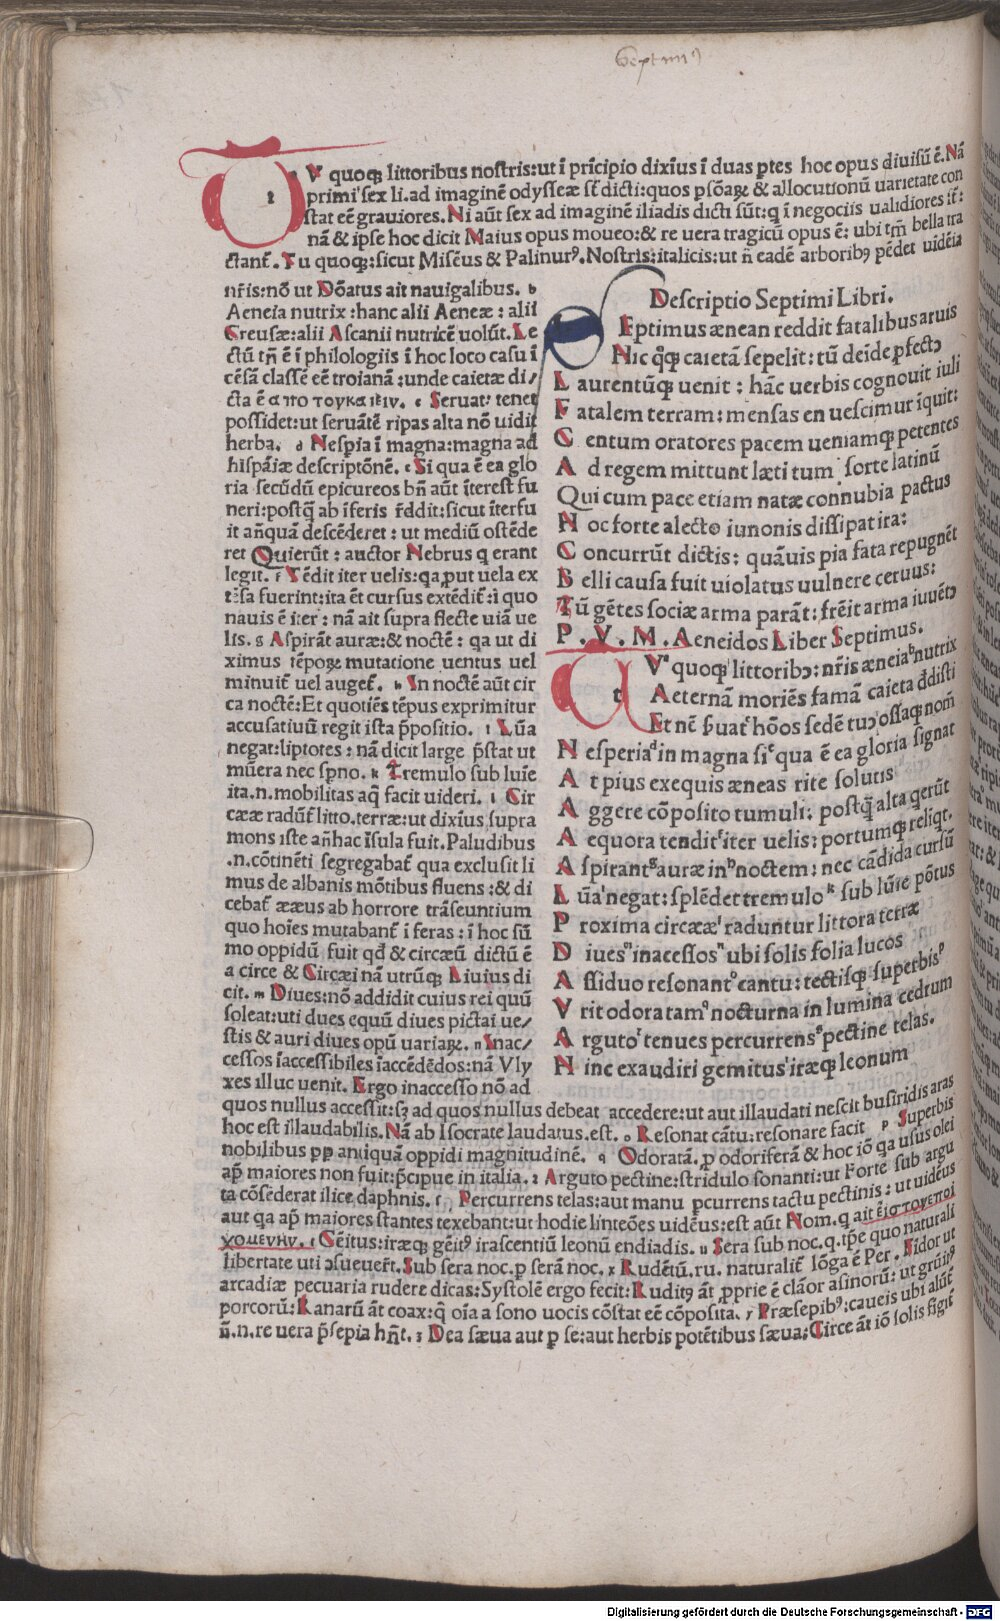 Septimꝰ
V quoq; littoribus nostris:ut ī prīcipio dixiꝰ ī duas ꝑtes hoc opus diuisū ē.Nā
t primi sex li.ad imaginē odysseæ sūt dicti:quos ꝑsōaꝝ & allocutionū uarietate con
stat eē grauiores.Ni aūt sex ad imaginē iliadis dicti sūt:q ī negociis ualidiores sūt:
nā & ipse hoc dicit Maius opus moueo:& re uera tragicū opus ē: ubi tm̄ bella tra
ctant᷑.Tu quoq;:sicut Misēus & Palinurꝰ.Nostris:italicis:ut n̄ eadē arboribꝰ pēdet uidēia
nr̄is:nō ut Dōatus ait nauigalibus. b
Aeneia nutrix:hanc alii Aeneæ: alii
Creusæ:alii Ascanii nutricē uolūt.Le
ctū tn̄ ē ī philologiis ī hoc loco casu ī
cēsā classē eē troianā:unde caietæ di/
cta ē απο τουκαιειν. c Seruat: tenet
possidet:ut seruātē ripas alta nō uidit
herba. d Hesꝑia ī magna:magna ad
hispāiæ descriptōnē. e Si qua ē ea glo
ria secūdū epicureos bn̄ aūt īterest fu
neri:postq̄ ab īferis r̄ddit:sicut īterfu
it an̄quā descēderet: ut mediū ostēde
ret Quierūt: auctor Nebrus q erant
legit. f Tēdit iter uelis:qa ꝓut uela ex
tēsa fuerint:ita ēt cursus extēdit᷑:ī quo
nauis ē iter: nā ait supra flecte uiā ue
lis. g Aspirāt auræ:& noctē: qa ut di
ximus tēpoꝝ mutatione uentus uel
minuit᷑ uel auget᷑. h In noctē aūt cir
ca noctē:Et quotiēs tēpus exprimitur
accusatiuū regit ista p̄positio. i Lūa
negat:liptotes: nā dicit large p̄stat ut
mūera nec sꝑno. k Tremulo sub luīe
ita.n.mobilitas aq̄ facit uideri. l Cir
cææ radūt᷑ litto.terræ:ut dixiꝰ supra
mons iste an̄hac īsula fuit.Paludibus
.n.cōtinēti segregabat᷑ qua exclusit li
mus de albanis mōtibus fluens:& di
cebat᷑ ææus ab horrore trāseuntium
quo hoīes mutabant᷑ ī feras: ī hoc sū
mo oppidū fuit qd̄ & circæū dictū ē
a circe & Circæi nā utrūq; Liuius di
cit. m Diues:nō addidit cuius rei quū
soleat:uti dues equū diues pictai ue/
stis & auri diues opū uariaꝝ. n Inac/
cessos īaccessibiles īaccēdēdos:nā Vly
xes illuc uenit. Ergo inaccesso nō ad
Descriptio Septimi Libri.
Eptimus ænean reddit fatalibus aruis
Hic q̊q; caietā sepelit: tū deīde ꝓfectꝰ
L aurentūq; uenit: hāc uerbis cognouit iuli
F atalem terram:mensas en uescimur īquit:
C entum oratores pacem ueniamq; petentes
A d regem mittunt læti tum sorte latinū
Qui cum pace etiam natæ connubia pactus
H oc forte alecto iunonis dissipat ira:
C oncurrūt dictis: quāuis pia fata repugnēt
B elli causa fuit uiolatus uulnere ceruus:
Tū gētes sociæ arma parāt: frēit arma iuuētꝰ
P.V.M. Aeneidos Liber Septimus.
V quoq; littoribꝰ:nr̄is æneia nutrix
t Aeternā moriēs famā caieta dedisti
Et nē ẜuat᷑ hōos sedē tuꝰ ossaq; nom̄
H esperia in magna si qua ē ea gloria signat
A t pius exequis æneas rite solutis
A ggere cōposito tumuli: postq̄ alta qerūt
A equora tendit iter uelis: portumq; reliqt.
A spirant auræ in noctem: nec cādida cursū
L ūa negat:splēdet tremulo sub lūie pōtus
P roxima circææ raduntur littora terræ
D iues inacessos ubi solis folia lucos
A ssiduo resonant cantu: tectisq; superbis
V rit odoratam nocturna in lumina cedrum
A rguto tenues percurrens pectine telas.
H inc exaudiri gemitus iræq; leonum
quos nullus accessit:sꝫ ad quos nullus debeat accedere:ut aut illaudati nescit busiridis aras
hoc est illaudabilis.Nā ab Isocrate laudatus.est. o Resonat cātu:resonare facit p Superbis
nobilibus ꝓp antiquā oppidi magnitudinē. q Odoratā.ꝓ odoriferā & hoc iō qa usus olei
ap̄ maiores non fuit:p̄cipue in italia. r Arguto pectine:stridulo sonanti:ut Forte sub argu
ta cōsēderat ilice daphnis. s Percurrens telas:aut manu ꝑcurrens tactu pectinis: ut uidēus
aut qa ap̄ maiores stantes texebant:ut hodie linteōes uidēus:est aūt Nom.q ait εἱστουεποι
χομενην. t Gēitus:iræq; gēitꝰ irascentiū leonū endiadis. u Sera sub noc.q.tp̄e quo naturali
libertate uti ɔsueuer̄t.Sub sera noc.ꝓ serā noc. x Rudētū.ru. naturalit᷑ lōga ē Per. Sidor ut
arcadiæ pecuaria rudere dicas:Systolē ergo fecit:Ruditꝰ āt ꝓprie ē clāor asinorū: ut grūitꝰ
porcorū:Ranarū āt coax:q̊ oīa a sono uocis cōstat eē cōposita. y Præsepibꝰ:caueis ubi alūt᷑
n̄.n.re uera p̄sepia hn̄t. z Dea sæua aut ꝑ se:aut herbis potētibus sæua:Circe āt iō solis figit᷑
Digitalisierung gefördert durch die Deutsche Forschungsgemeinschaft - DFG